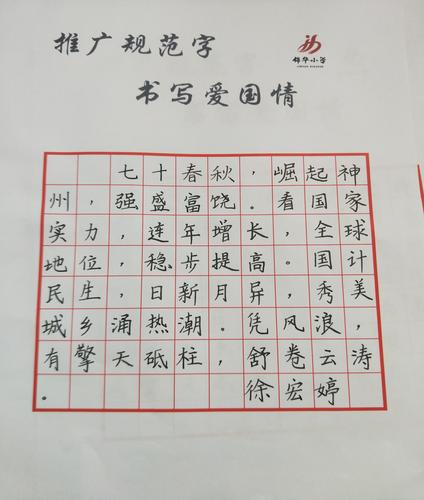 推广规范字
锦华小学
书写爱国情
七十春秋，崛起神
州，强盛富饶。看国家
实力，连年增长，全球
地位，稳步提高。国计
民生，日新月异，秀美
城乡涌热潮。凭风浪，
有擎天砥柱，舒卷云涛
。徐宏婷